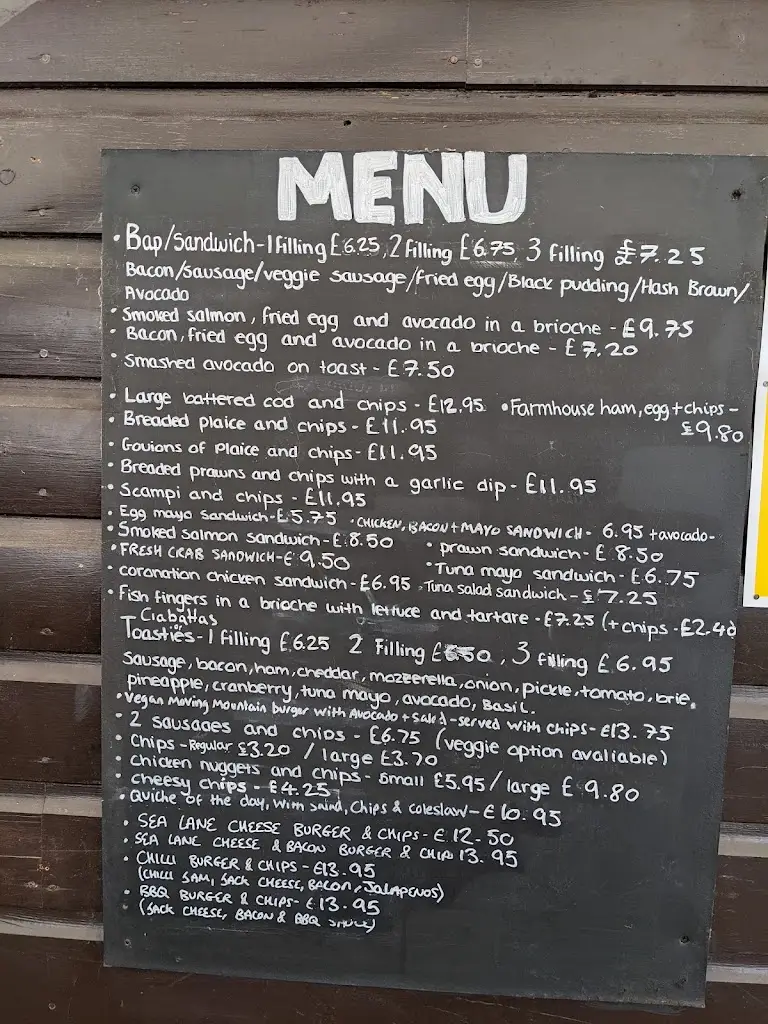 MENU
• Bap/Sandwich - 1 filling £6.25, 2 filling £6.75, 3 filling £7.25
Bacon/sausage/veggie sausage/fried egg/Black pudding/Hash Brown/
Avocado
• Smoked salmon, fried egg and avocado in a brioche - £9.75
• Bacon, fried egg and avocado in a brioche - £7.20
• Smashed avocado on toast - £7.50
• Large battered cod and chips - £12.95 • Farmhouse ham, egg + chips -
£9.80
• Breaded plaice and chips - £11.95
• Goujons of Plaice and chips - £11.95
• Breaded prawns and chips with a garlic dip - £11.95
• Scampi and chips - £11.95
• Egg mayo sandwich - £5.75 • CHICKEN, BACON + MAYO SANDWICH - 6.95 + avocado -
• Smoked salmon sandwich - £8.50 • prawn sandwich - £8.50
• FRESH CRAB SANDWICH - £9.50 • Tuna mayo sandwich - £6.75
• coronation chicken sandwich - £6.95 • Tuna salad sandwich - £7.25
• Fish fingers in a brioche with lettuce and tartare - £7.25 (+ chips - £2.40
Ciabattas
or
Toasties - 1 filling £6.25 2 Filling , 3 filling £6.95
Sausage, bacon, ham, cheddar, mozzerella, onion, pickle, tomato, brie,
pineapple, cranberry, tuna mayo, avocado, Basil.
• Vegan Moving Mountain burger with Avocado + Salad - served with chips - £13.75
• 2 sausages and chips - £6.75 (veggie option avaliable)
• Chips - Regular £3.20 / large £3.70
• chicken nuggets and chips - small £5.95 / large £9.80
• cheesy chips - £4.25
• Quiche of the day, with salad, Chips & coleslaw - £10.95
• SEA LANE CHEESE BURGER & CHIPS - £12.50
• SEA LANE CHEESE & BACON BURGER & CHIP 13.95
• CHILLI BURGER & CHIPS - £13.95
(CHILLI JAM, JACK CHEESE, BACON, JALAPENOS)
• BBQ BURGER & CHIPS - £13.95
(JACK CHEESE, BACON & BBQ SAUCE)